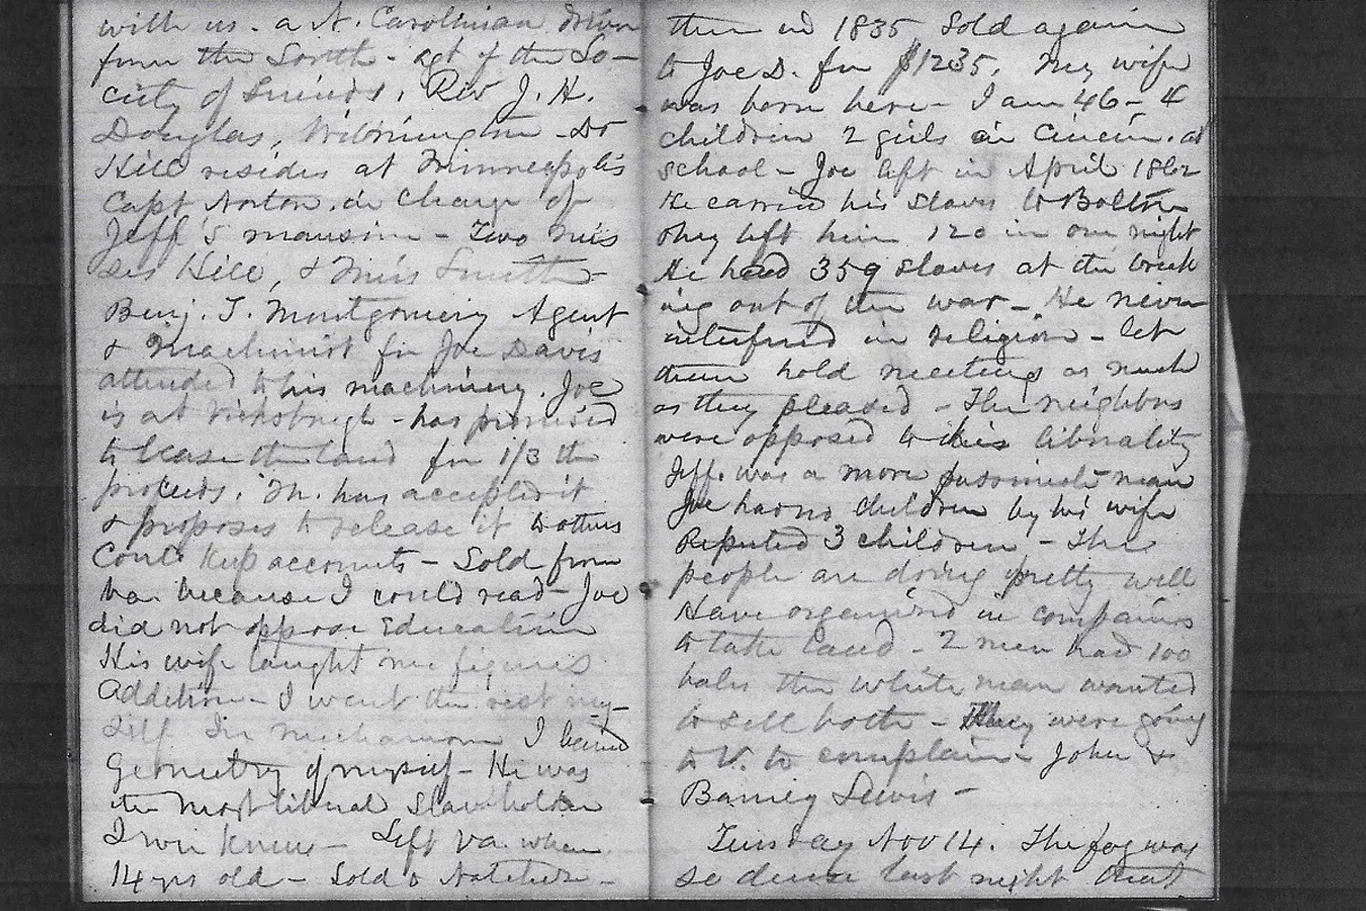 with us. a N. Carolinian driven
from the South - agt of the So-
ciety of Friends, Rev J. H.
Douglas, Wilmington - Dr
Hill resides at Minneapolis
Capt Norton in charge of
Jeff's mansion - Two Mis
ses Hill, & Miss Smith -
Benj. T. Montgomery Agent
& Machinist for Joe Davis
attended to his machinery. Joe
is at Vicksburgh - has promised
to lease the land for 1/3 the
proceeds. M. has accepted it
& proposes to release it to others
Could keep accounts - Sold from
Va. because I could read - Joe
did not oppose Education
His wife taught me figures
Addition - I went the rest my-
self In mechanism I learned
Geometry of myself - He was
the most liberal Slaveholder
I ever knew - Left Va. when
14 yrs old - Sold to Natchez -
then in 1835 Sold again
to Joe D. for $1235. My wife
was born here - I am 46 - 4
children 2 girls in Cincin. at
school - Joe left in April 1862
He carried his slaves to Bolton
they left him 120 in one night
He had 359 slaves at the break
ing out of the war - He never
interfered in religion - let
them hold meetings as much
as they pleased - The neighbors
were opposed to this liberality
Jeff. was a more passionate man
Joe has no children by his wife
Reputed 3 children - The
people are doing pretty well
Have organized in companies
to take land - 2 men had 100
bales the white man wanted
to sell both - They were going
to V. to complain - John &
Barney Lewis -
Tuesday Nov 14. The fog was
so dense last night that